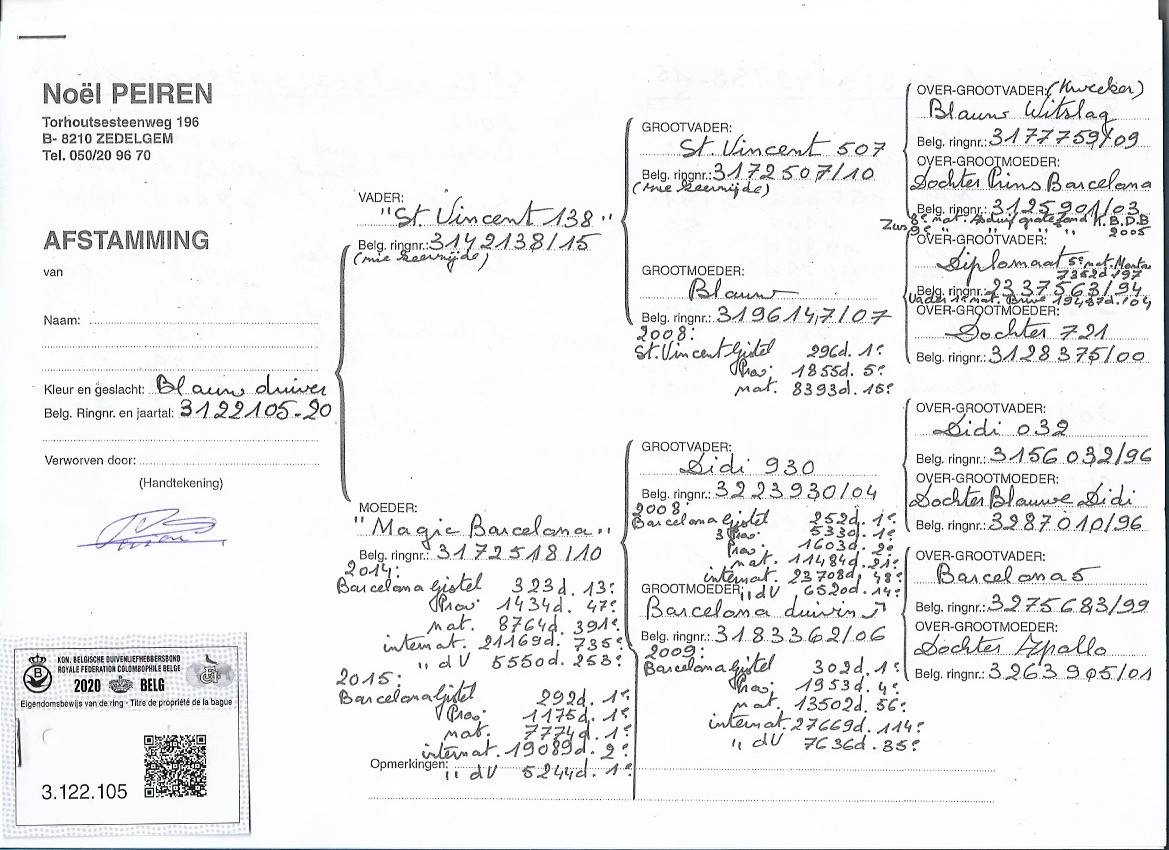 Noël PEIREN
Torhoutsesteenweg 196
B- 8210 ZEDELGEM
Tel. 050/20 96 70
AFSTAMMING
van
Naam:
Kleur en geslacht: Blauw duiver
Belg. Ringnr. en jaartal: 3122105-20
Verworven door:
(Handtekening)
KON. BELGISCHE DUIVENLIEFHEBBERSBOND
ROYALE FEDERATION COLOMBOPHILE BELGE
2020 BELG
Eigendomsbewijs van de ring - Titre de propriété de la bague
3.122.105
VADER:
"St. Vincent 138"
Belg. ringnr.: 3142138/15
(mie keernijde)
MOEDER:
"Magic Barcelona"
Belg. ringnr.: 3172518/10
2014:
Barcelona Gistel 323d. 13e
Prov. 1434d. 47e
nat. 8764d. 391e
internat. 21169d. 735e
" dV 5550d. 253e
2015:
Barcelona Gistel 292d. 1e
Prov. 1175d. 1e
nat. 7774d. 1e
internat. 19089d. 2e
Opmerkingen: " dV 5244d. 1e
GROOTVADER:
St. Vincent 507
Belg. ringnr.: 3172507/10
(mie keernijde)
GROOTMOEDER:
Blauw
Belg. ringnr.: 3196147/07
2008:
St. Vincent Gistel 296d. 1e
Prov. 1855d. 5e
nat. 8393d. 15e
GROOTVADER:
Didi 930
Belg. ringnr.: 3223930/04
2008:
Barcelona Gistel 252d. 1e
3 Prov. 533d. 1e
Prov. 1603d. 2e
nat. 11484d. 21e
internat. 23708d. 48e
" dV 6520d. 14e
GROOTMOEDER:
Barcelona duivin
Belg. ringnr.: 3183362/06
2009:
Barcelona Gistel 302d. 1e
Prov. 1953d. 4e
nat. 13502d. 56e
internat. 27669d. 114e
" dV 7636d. 35e
OVER-GROOTVADER: (Kweeker)
Blauw Witslag
Belg. ringnr.: 3177759/09
OVER-GROOTMOEDER:
Dochter Prins Barcelona
Belg. ringnr.: 3125901/03
Zus 8e nat. Asduif grote fond K.B.D.B
9e " " " " 2005
OVER-GROOTVADER:
Diplomaat 5e nat. Montau
7352d 197
Belg. ringnr.: 2337563/94
Vader 1e nat. Brive 19487d. /04
OVER-GROOTMOEDER:
Dochter 721
Belg. ringnr.: 3128375/00
OVER-GROOTVADER:
Didi 032
Belg. ringnr.: 3156032/96
OVER-GROOTMOEDER:
Dochter Blauwe Didi
Belg. ringnr.: 3287010/96
OVER-GROOTVADER:
Barcelona 5
Belg. ringnr.: 3275683/99
OVER-GROOTMOEDER:
Dochter Apollo
Belg. ringnr.: 3263905/01